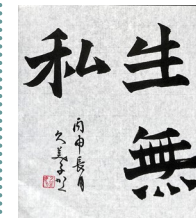 生無
私
丙申長月
久美子